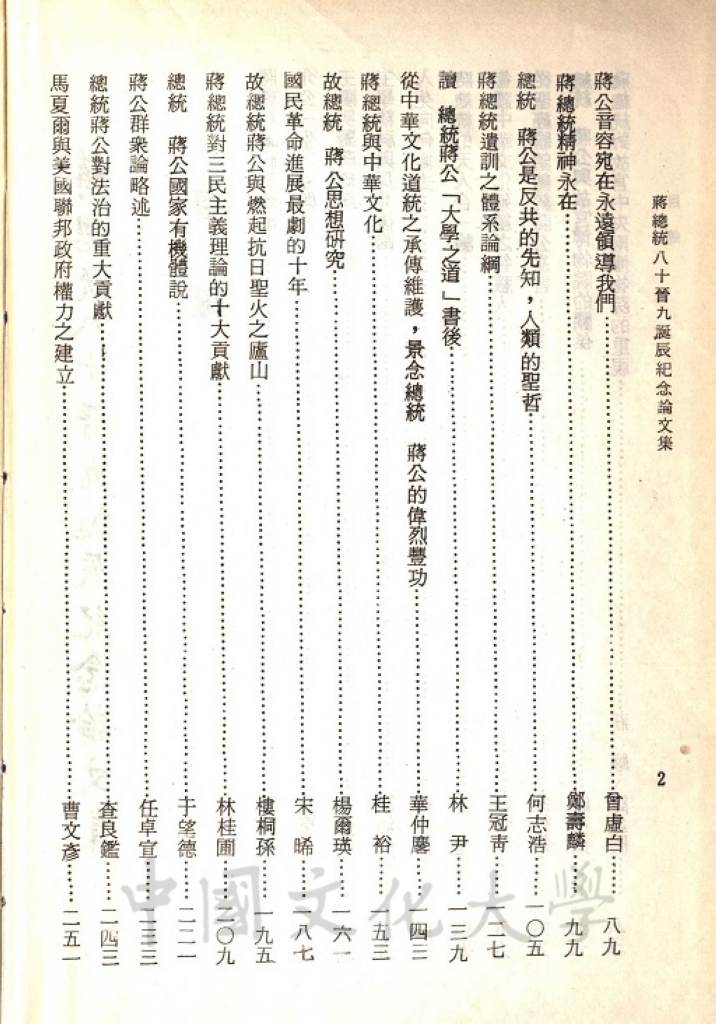 蔣總統八十晉九誕辰紀念論文集
2
蔣公音容宛在永遠領導我們⋯⋯曾虛白⋯⋯八九
蔣總統精神永在⋯⋯鄭壽麟⋯⋯九九
總統　蔣公是反共的先知,人類的聖哲⋯⋯何志浩⋯⋯一〇五
蔣總統遺訓之體系論綱⋯⋯王冠青⋯⋯一二七
讀　總統蔣公「大學之道」書後⋯⋯林　尹⋯⋯一三九
從中華文化道統之承傳維護,景念總統　蔣公的偉烈豐功⋯⋯華仲麐⋯⋯一四三
蔣總統與中華文化⋯⋯桂　裕⋯⋯一五三
故總統　蔣公思想研究⋯⋯楊爾瑛⋯⋯一六一
國民革命進展最劇的十年⋯⋯宋　晞⋯⋯一八七
故總統蔣公與燃起抗日聖火之廬山⋯⋯樓桐孫⋯⋯一九五
蔣總統對三民主義理論的十大貢獻⋯⋯林桂圃⋯⋯二〇九
總統　蔣公國家有機體說⋯⋯于望德⋯⋯二二一
蔣公群衆論略述⋯⋯任卓宣⋯⋯二三三
總統蔣公對法治的重大貢獻⋯⋯查良鑑⋯⋯二四三
馬夏爾與美國聯邦政府權力之建立⋯⋯曹文彥⋯⋯二五一
中國文化大學